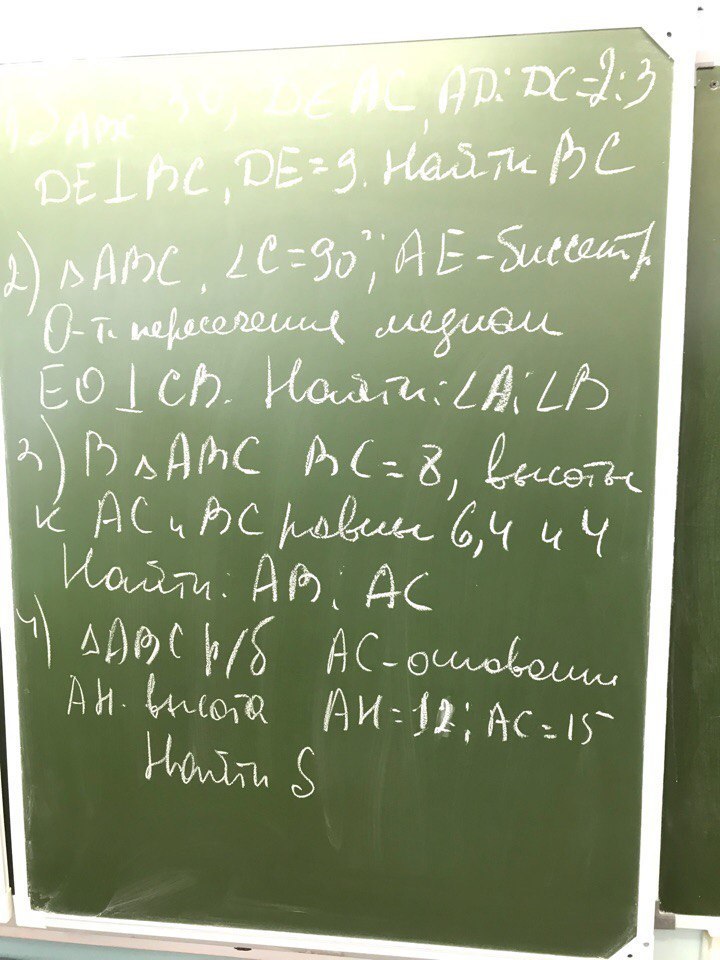 1) S ABC 30, D ∈ AC, AD : DC = 2 : 3
DE ⊥ BC, DE = 9. Найти BC
2) △ABC, ∠C = 90°; AE - биссектр
O - т. пересечения медиан
EO ⊥ CB. Найти: ∠A; ∠B
3) В △ABC BC = 8, высоты
к AC и BC равны 6,4 и 4
Найти: AB; AC
4) △ABC р/б AC - основание
AH - высота AH = 12; AC = 15
Найти S